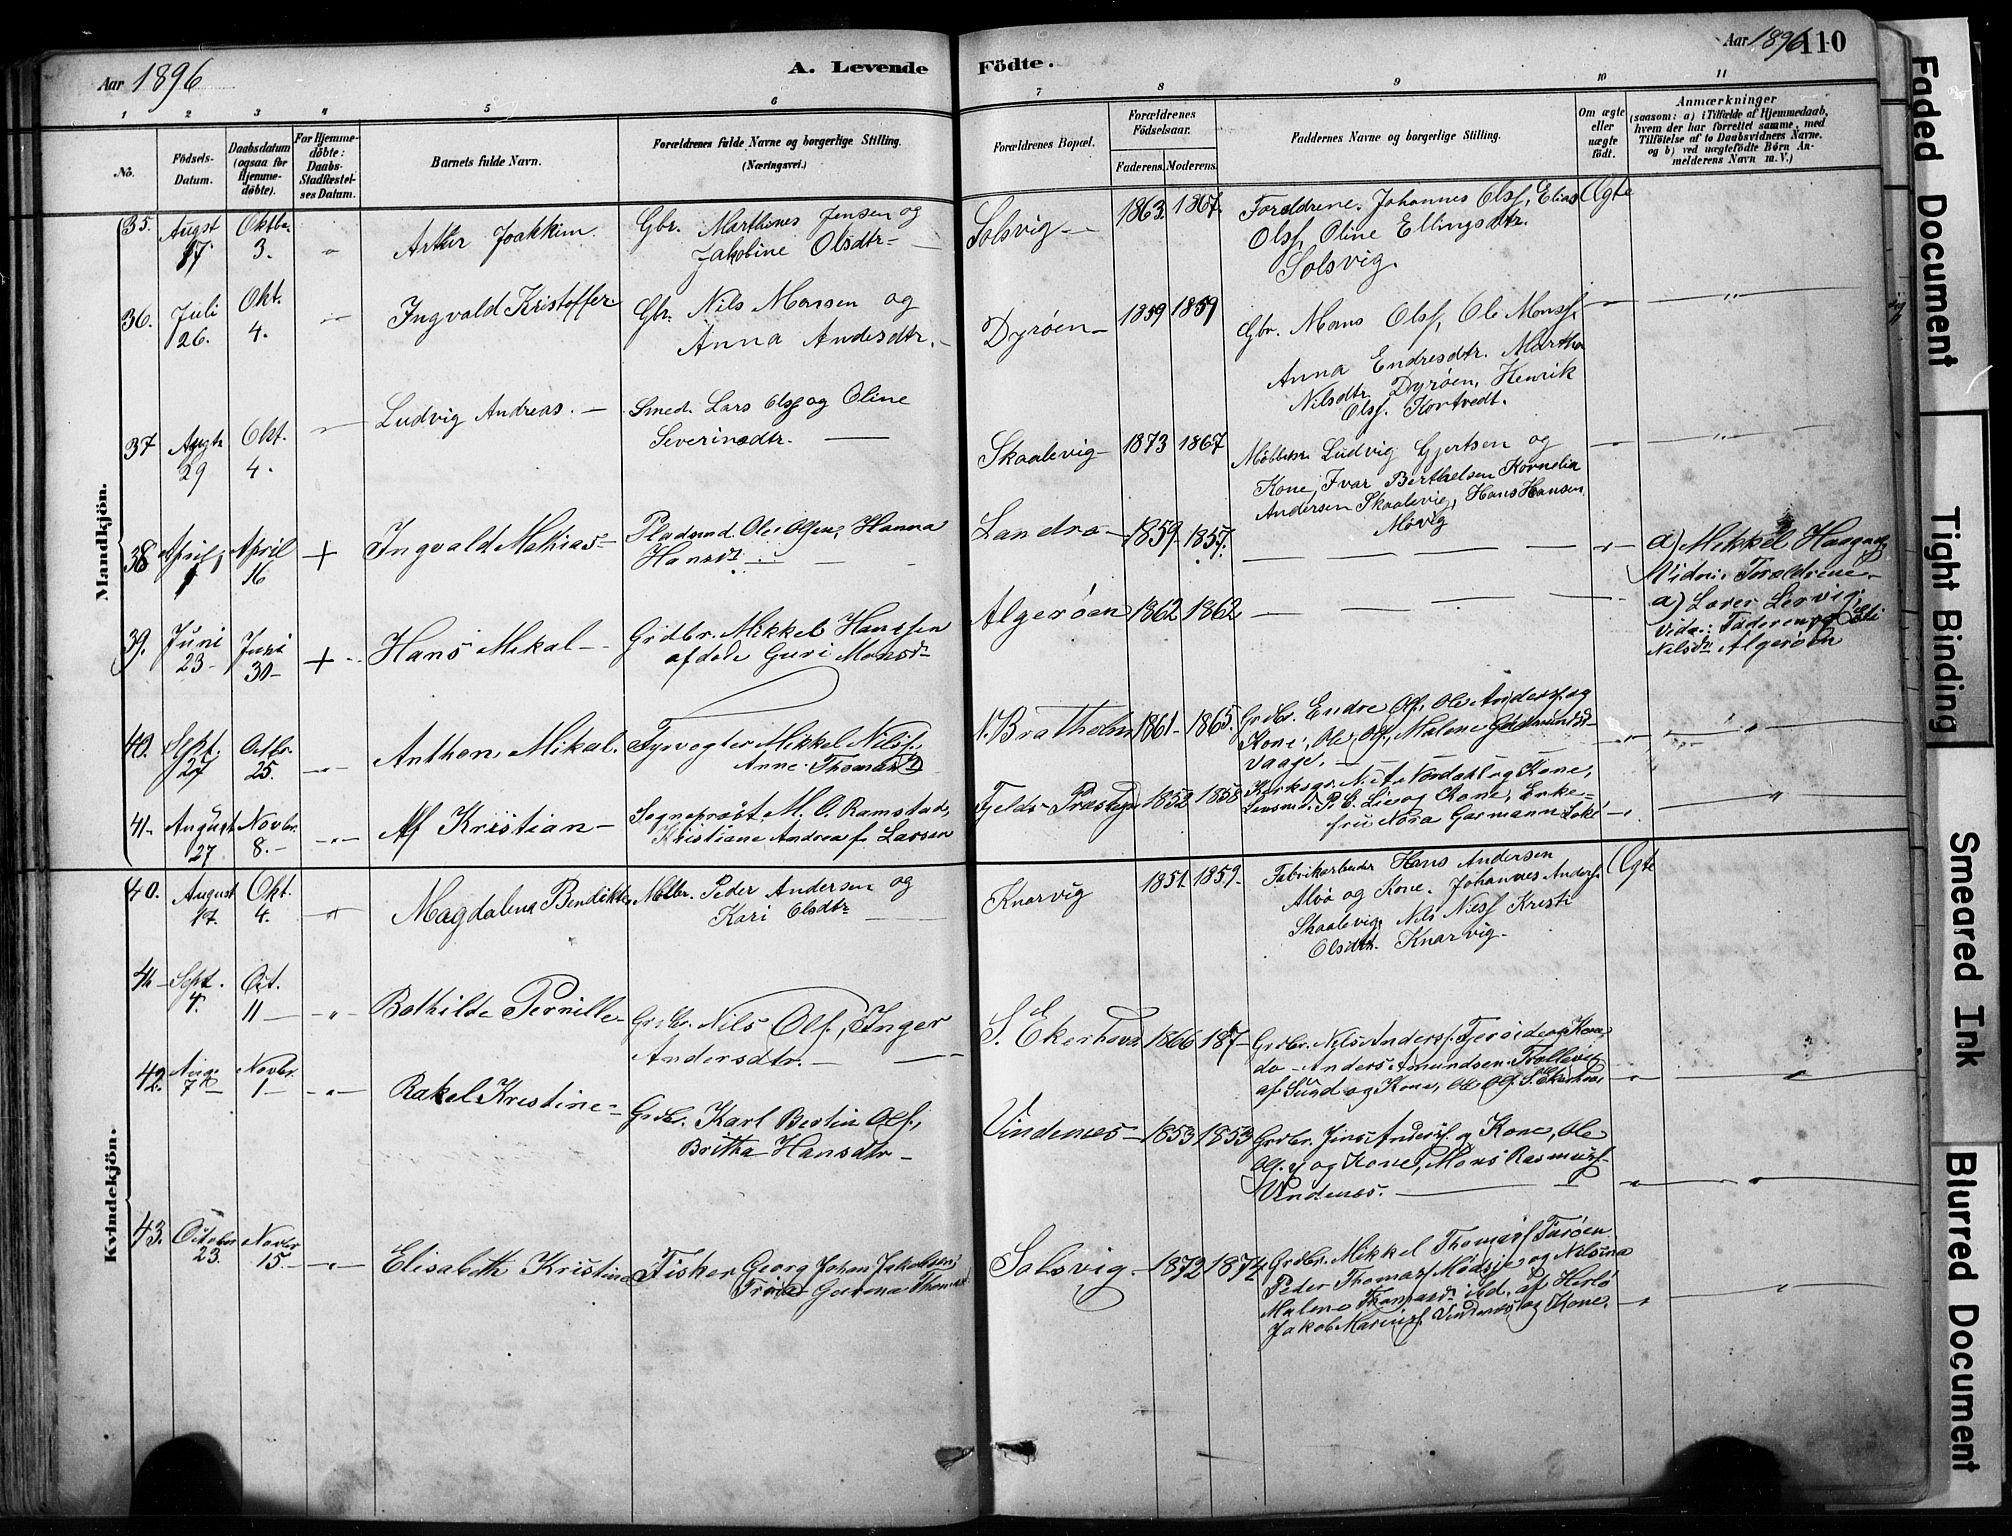 Aar 1896
A. Levende
Födte.
Aar 1896 110
1 2 3 4 5 6 7 8 9 10 11
No.
Födsels-
Datum.
Daabsdatum
(ogsaa för
Hjemme-
döbte).
For Hjemme-
döbte:
Daabs-
Stadfæstel-
ses Datum.
Barnets fulde Navn.
Forældrenes fulde Navne og borgerlige Stilling.
(Næringsvei.)
Forældrenes Bopæl.
Forældrenes
Födselsaar.
Faderens. Moderens.
Faddernes Navne og borgerlige Stilling.
Om ægte
eller
uægte
födt.
Anmærkninger
(saasom: a) i Tilfælde af Hjemmedaab,
hvem der har forrettet samme, med
Tilföielse af to Daabsvidners Navne,
og b) ved uægtefödte Børn An-
melderens Navn m. V.)
Mandkjön.
35. Augst 17. Oktbr. 3. Artur Joakkim.
Gbr. Marthines Jensen og
Jakobine Olsdtr
Solsvig 1863. 1867.
Forældrene. Johannes Olsf, Elias
Olsf, Oline Ellingsdtr.
Solsvig.
Ægte
36. Juli 26. Okt. 4. Ingvald Kristoffer
Gbr. Nils Monsen og
Anna Andersdtr.
Dyrøen 1859 1859
Gbr. Mons Olsf, Ole Monsf,
Anna Endresdtr. Martha
Nilsdtr Dyrøen, Henrik
Olsf. Kortvedt.
37 Augts 29 Okt. 4. Ludvig Andreas.
Smed. Lars Olsf og Oline
Severinsdtr.
Skaalevig 1873 1867
Ludvig Gjertsen og
Kone, Ivar Berthelsen Kornelia
Andersen Skaalevig, Hans Hansen
Møvig
38 April 1 April 16 + Ingvald Mathias
Pladsmd Ole Olsen, Hanna
Hansdr
Landro 1859 1857.
a) Mikkel Haagen
Vidni: Forældrene
39. Juni 23 Juni 30 + Hans Mikal
Grdbr. Mikkel Hanssen
afdøde Guri Monsdr
Algerøen 1862 1862
a) Lærer Lervig
Vidni: Faderen og Eli
Nilsdr Algerøen
40. Sept. 27 Octbr. 25. Anthon Mikal.
Fyrvogter Mikkel Nilsf.
Anne Thomasdr
N. Bratholm 1861 1865.
Grdbr. Endre Olsf, Ole Andersf. og
Kone, Ole Olsf, Malene Gudmundsdr
Vaage.
41 August 27 Novbr. 8. Alf Kristian
Sogneprest M. O. Ramstad,
Kristiane Andrea f. Larsen
Fjelds Præstegd 1852 1858
Kirkesgr. N. A. Nordahl og Kone,
Lensmd. P. C. Lie og Kone, Enke-
fru Nora Garmann
Kvindekjön.
40. August 17. Okt. 4. Magdalena Bendikte
Møllr. Peder Andersen og
Kari Olsdtr
Knarvig 1851. 1859.
Fabrikarbeidr Hans Andersen
Alvø og Kone. Johannes Andersf.
Skaalevig, Nils Nilsf Kristi
Olsdtr. Knarvig.
Ægte
41 Sept. 4. Oct. 11 Bathilde Pernille
Grdbr. Nils Olsf, Inger
Andersdtr.
S. Ekerhovd 1866 187
Grdbr. Nils Andersf. og Kone,
do Anders Amundsen Trollevig
af Sund og Kone, Ole Olsf S. Ekerhovd
42. Aug. 7 Novbr. 1 Rakel Kristine
Grdbr. Karl Bertin Olsf,
Britha Hansdtr
Vindenes 1853 1853
Grdbr. Jens Andersf. og Kone, Ole
Olsf. og Kone, Mons Rasmusf
Vindenes.
43. October 23. Novbr 15. Elisabeth Kristine
Fisker Georg Johan Jakobsen
Gurina Thomasdr
Solsvig 1872 1874
Grdbr. Mikkel Thomasf Turøen
Peder Thomasf og Nilsina
Malene Thomasdr af Herlø
Jakob Vindenes og Kone.
Faded Document
Tight Binding
Smeared Ink
Blurred Document